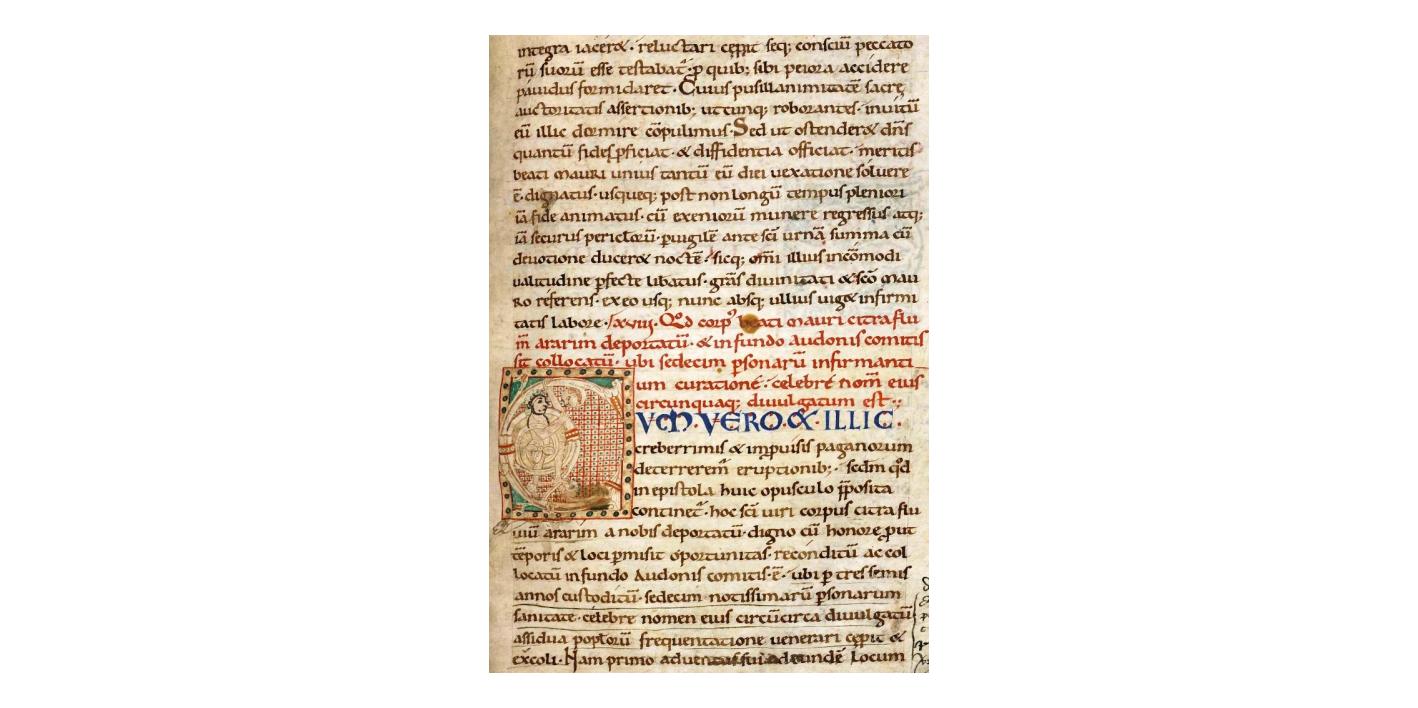 integra iaceret. reluctari cępit seq; consciū peccato
rū suorū esse testabat᷑. ꝑ quib; sibi peiora accidere
pauidus formidaret. Cuius pusillanimitatē sacrę
auctoritatis assertionib; utcunq; roborantes. inuitū
eū illic dormire cōpulimus. Sed ut ostenderet dn̄s
quantū fides ꝓficiat. & diffidentia officiat. meritis
beati mauri unius tantū eū diei uexatione soluere
ē dignatus. usqueq; post non longū tempus pleniori
iā fide animatus. cū exeniorū munere regressus atq;
iā securus periclorū. ꝑuigilē ante sc̄i urnā summa cū
deuotione duceret noctē. sicq; om̄i illius incōmodi
ualitudine ꝑfecte libatus. grās diuinitati & sc̄o mau
ro referens. ex eo usq; nunc absq; ullius uiget infirmi
tatis labore. Qd corp᷒ beati mauri citra flu
m̄ ararim deportatū. & in fundo audonis comitis
sit collocatū. ubi sedecim ꝑsonarū infirmanti
um curatione. celebre nom̄ eius
circunquaq; diuulgatum est.
CUM. VERO. & ILLIC.
creberrimis & inprouisis paganorum
deterrerem̄ eruptionib;. sedm qd
in epistola huic opusculo p̄posita
continet᷑. hoc sc̄i uiri corpus citra flu
uiū ararim a nobis deportatū. digno cū honore put
tēporis & loci ꝑmisit oportunitas. reconditū ac col
locatū in fundo Audonis comitis. ē. ubi ꝑ tres semis
annos custoditū. sedecim notissimarū ꝑsonarum
sanitate. celebre nomen eius circūcirca diuulgatū
assidua poplorū frequentatione uenerari cępit &
excoli. Nam primo aduentus sui ad eundē locum